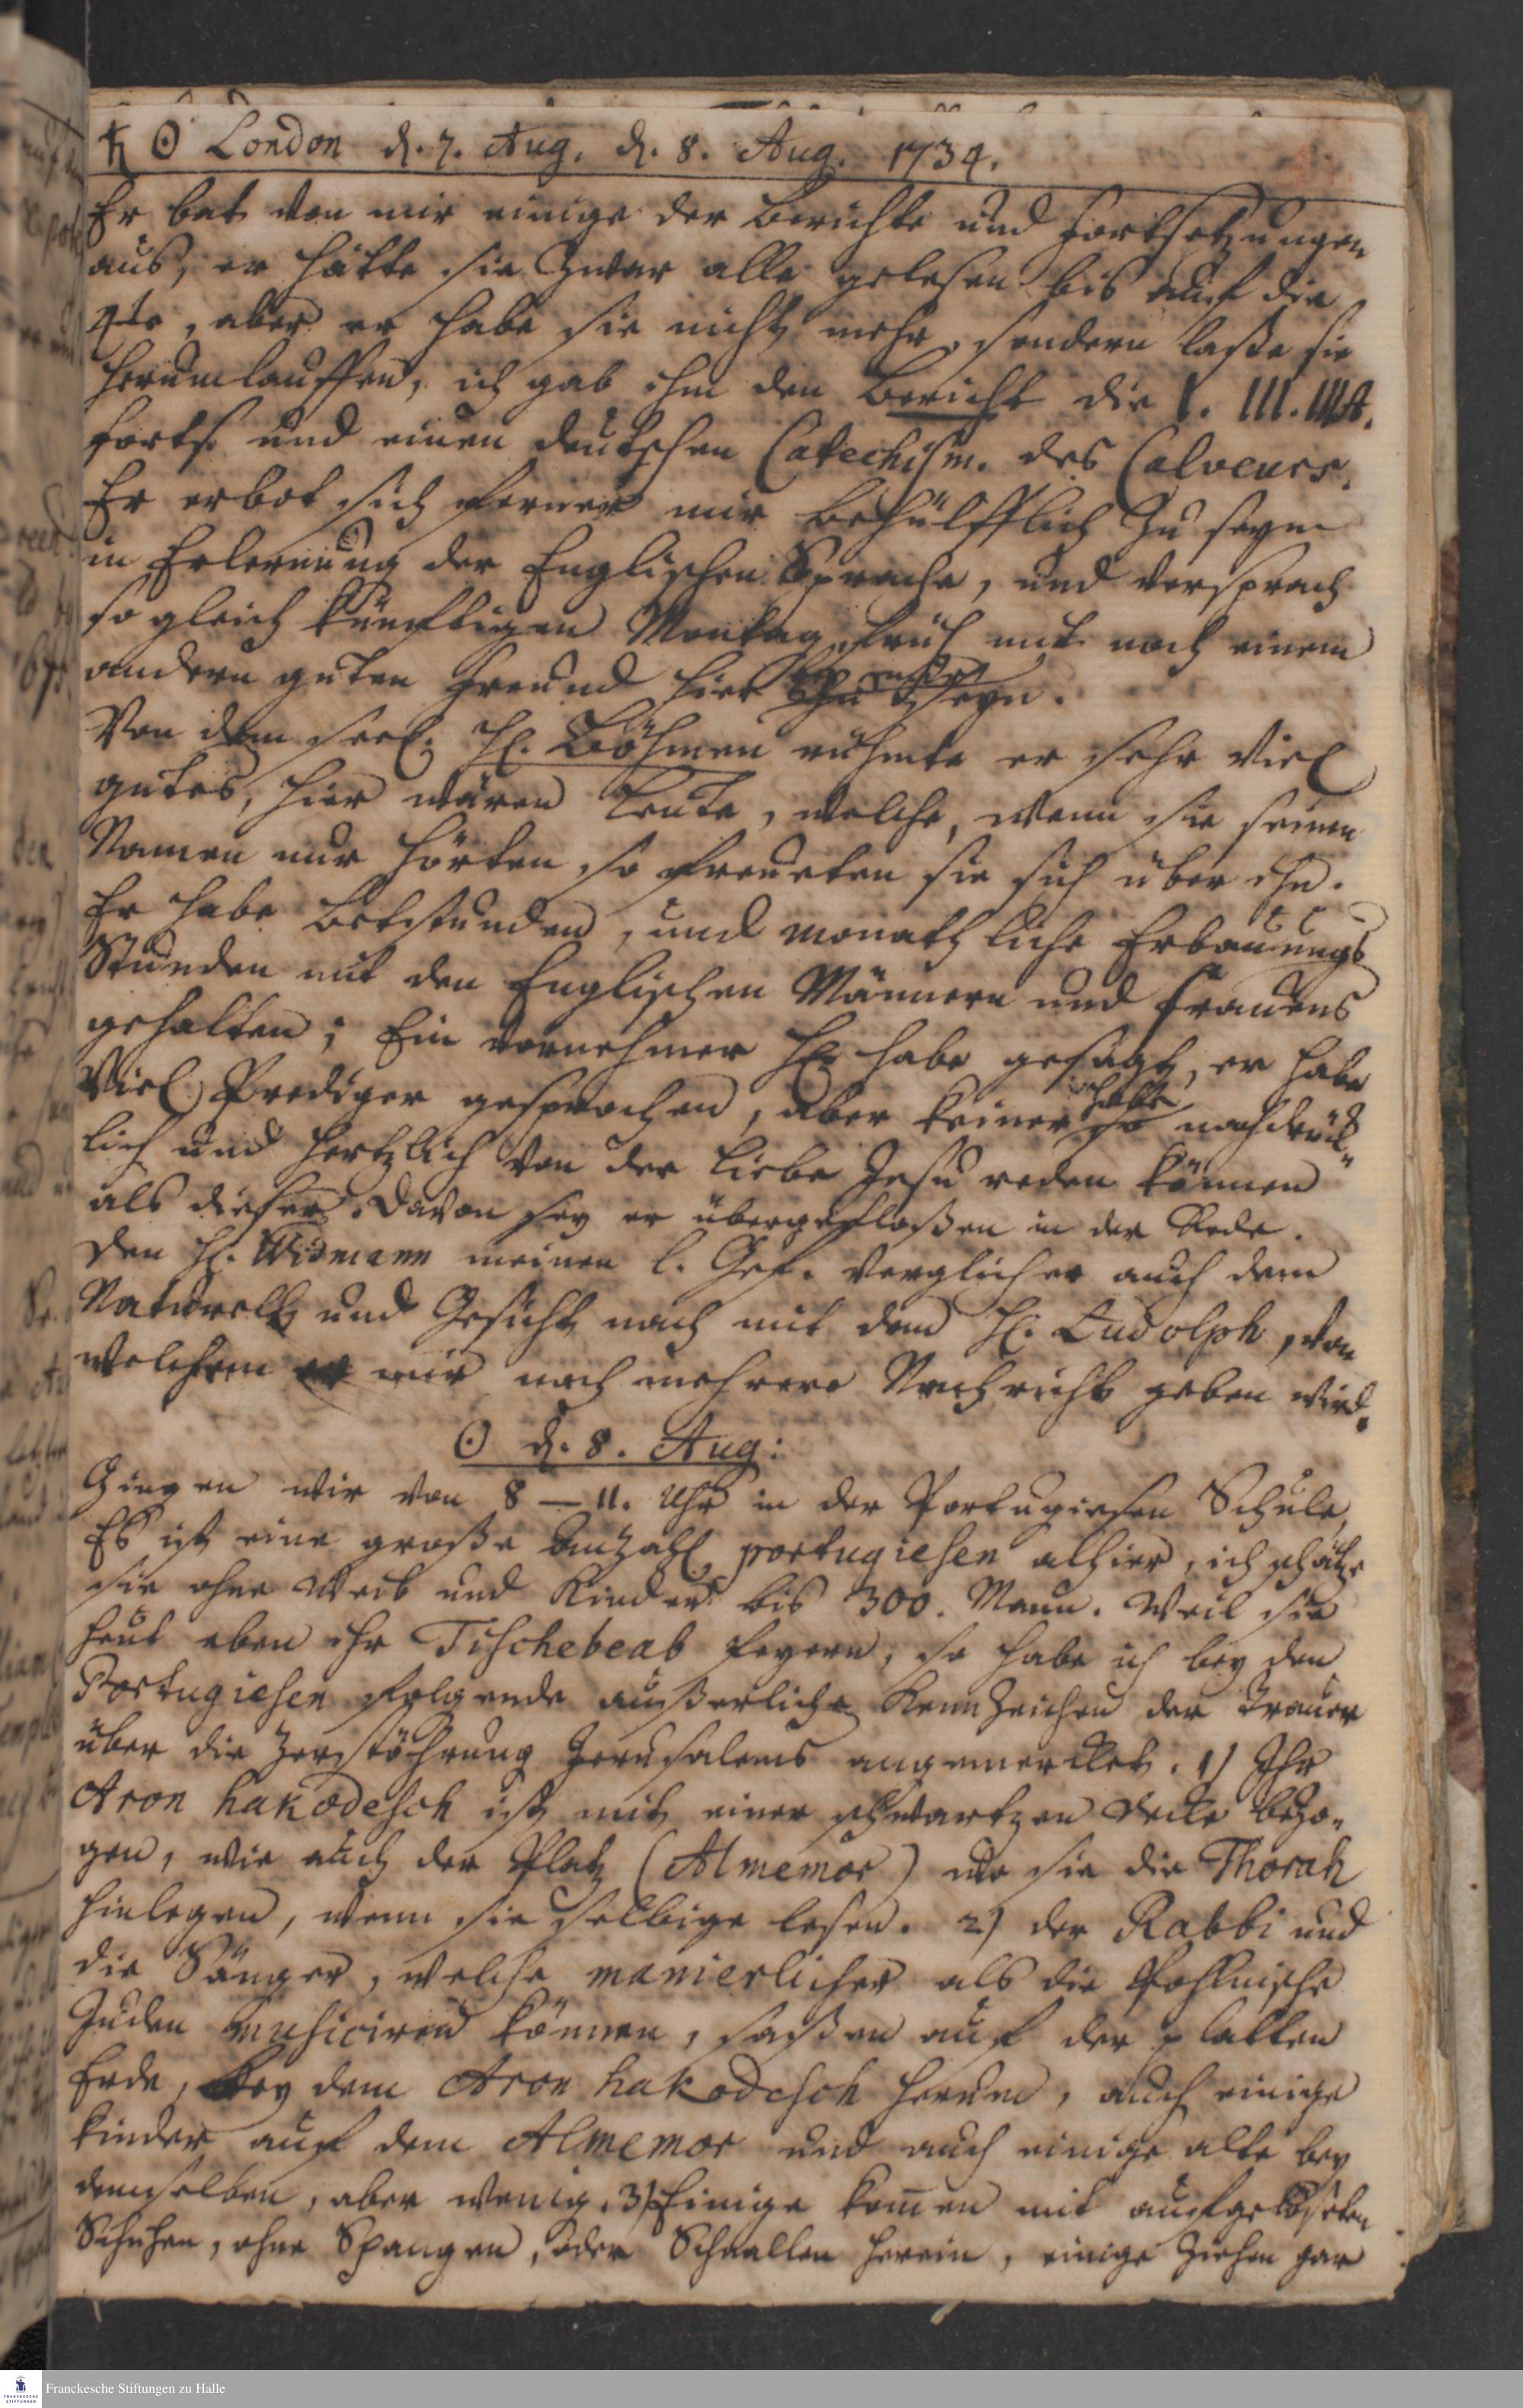 ♄ ☉ London d. 7. Aug. d. 8. Aug. 1734.
Er bat von mir einige der Berichte und Fortsetzungen
aus, er hätte sie zwar alle gelesen bis auf die
4te, aber er habe sie nicht mehr, sondern laße sie
herumlauffen, ich gab ihm den Bericht die I. III.
forts. und einen deutschen Catechism. des
Er erbot sich ferner mir behülfflich zu seyn
in Erlernung der Englischen Sprache, und versprach
so gleich künfftigen Montag früh mit noch einem
andern guten Freund hier zu seyn.
Von dem seel. H. Böhmen rühmte er sehr viel
gutes, hier wären Leute, welche, wenn sie seinen
Namen nur hörten so freueten sie sich über ihn.
Er habe Betstunden, und monathliche Erbauungs
Stunden mit den Englischen Männern und Frauens
gehalten; Ein vornehmer H. habe gesagt, er habe
viel Prediger gesprochen, aber keiner habe so nachdrück-
lich und hertzlich von der Liebe Jesu reden können
als dieser. Davon sey er übergefloßen in der Rede.
Den H. Widmann meinen l. Gef. verglich er auch dem
Naturell und Gesicht nach mit dem H. Ludolph, von
welchem er mir noch mehrere Nachricht geben wird.
☉ d. 8. Aug:
Gingen wir von 8 – 11. Uhr in der Portugiesen Schule,
Es ist eine große Anzahl portugiesen alhier, ich schätze
sie ohne Weib und Kinder bis 300. Mann. Weil sie
heut eben ihr Tischebeab feyern, so habe ich bey den
Portugiesen folgende äußerliche Kennzeichen der Trauer
über die Zerstöhrung Jerusalems angemercket. 1) Ihr
Aron hakodesch ist mit einer schwartzen Decke bezo-
gen, wie auch der Platz (Almemor) wo sie die Thorah
hinlegen, wenn sie selbige lesen. 2) der Rabbi und
die Sänger, welche manierlicher als die Pohlnische
Juden musiciren können, saßen auf der platten
Erde, bey dem Aron hakodesch herum, auch einige
Kinder auf dem Almemor und auch einige alte bey
demselben, aber wenig. 3) Einige kommen mit aufgelöseten
Schuhen, ohne Spangen, oder Schnallen herein, einige ziehen gar
Franckesche Stiftungen zu Halle